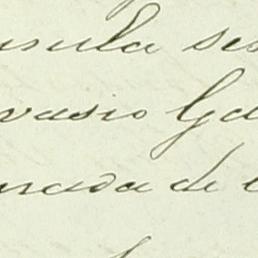 nsula ses
vasio Ga
nada de